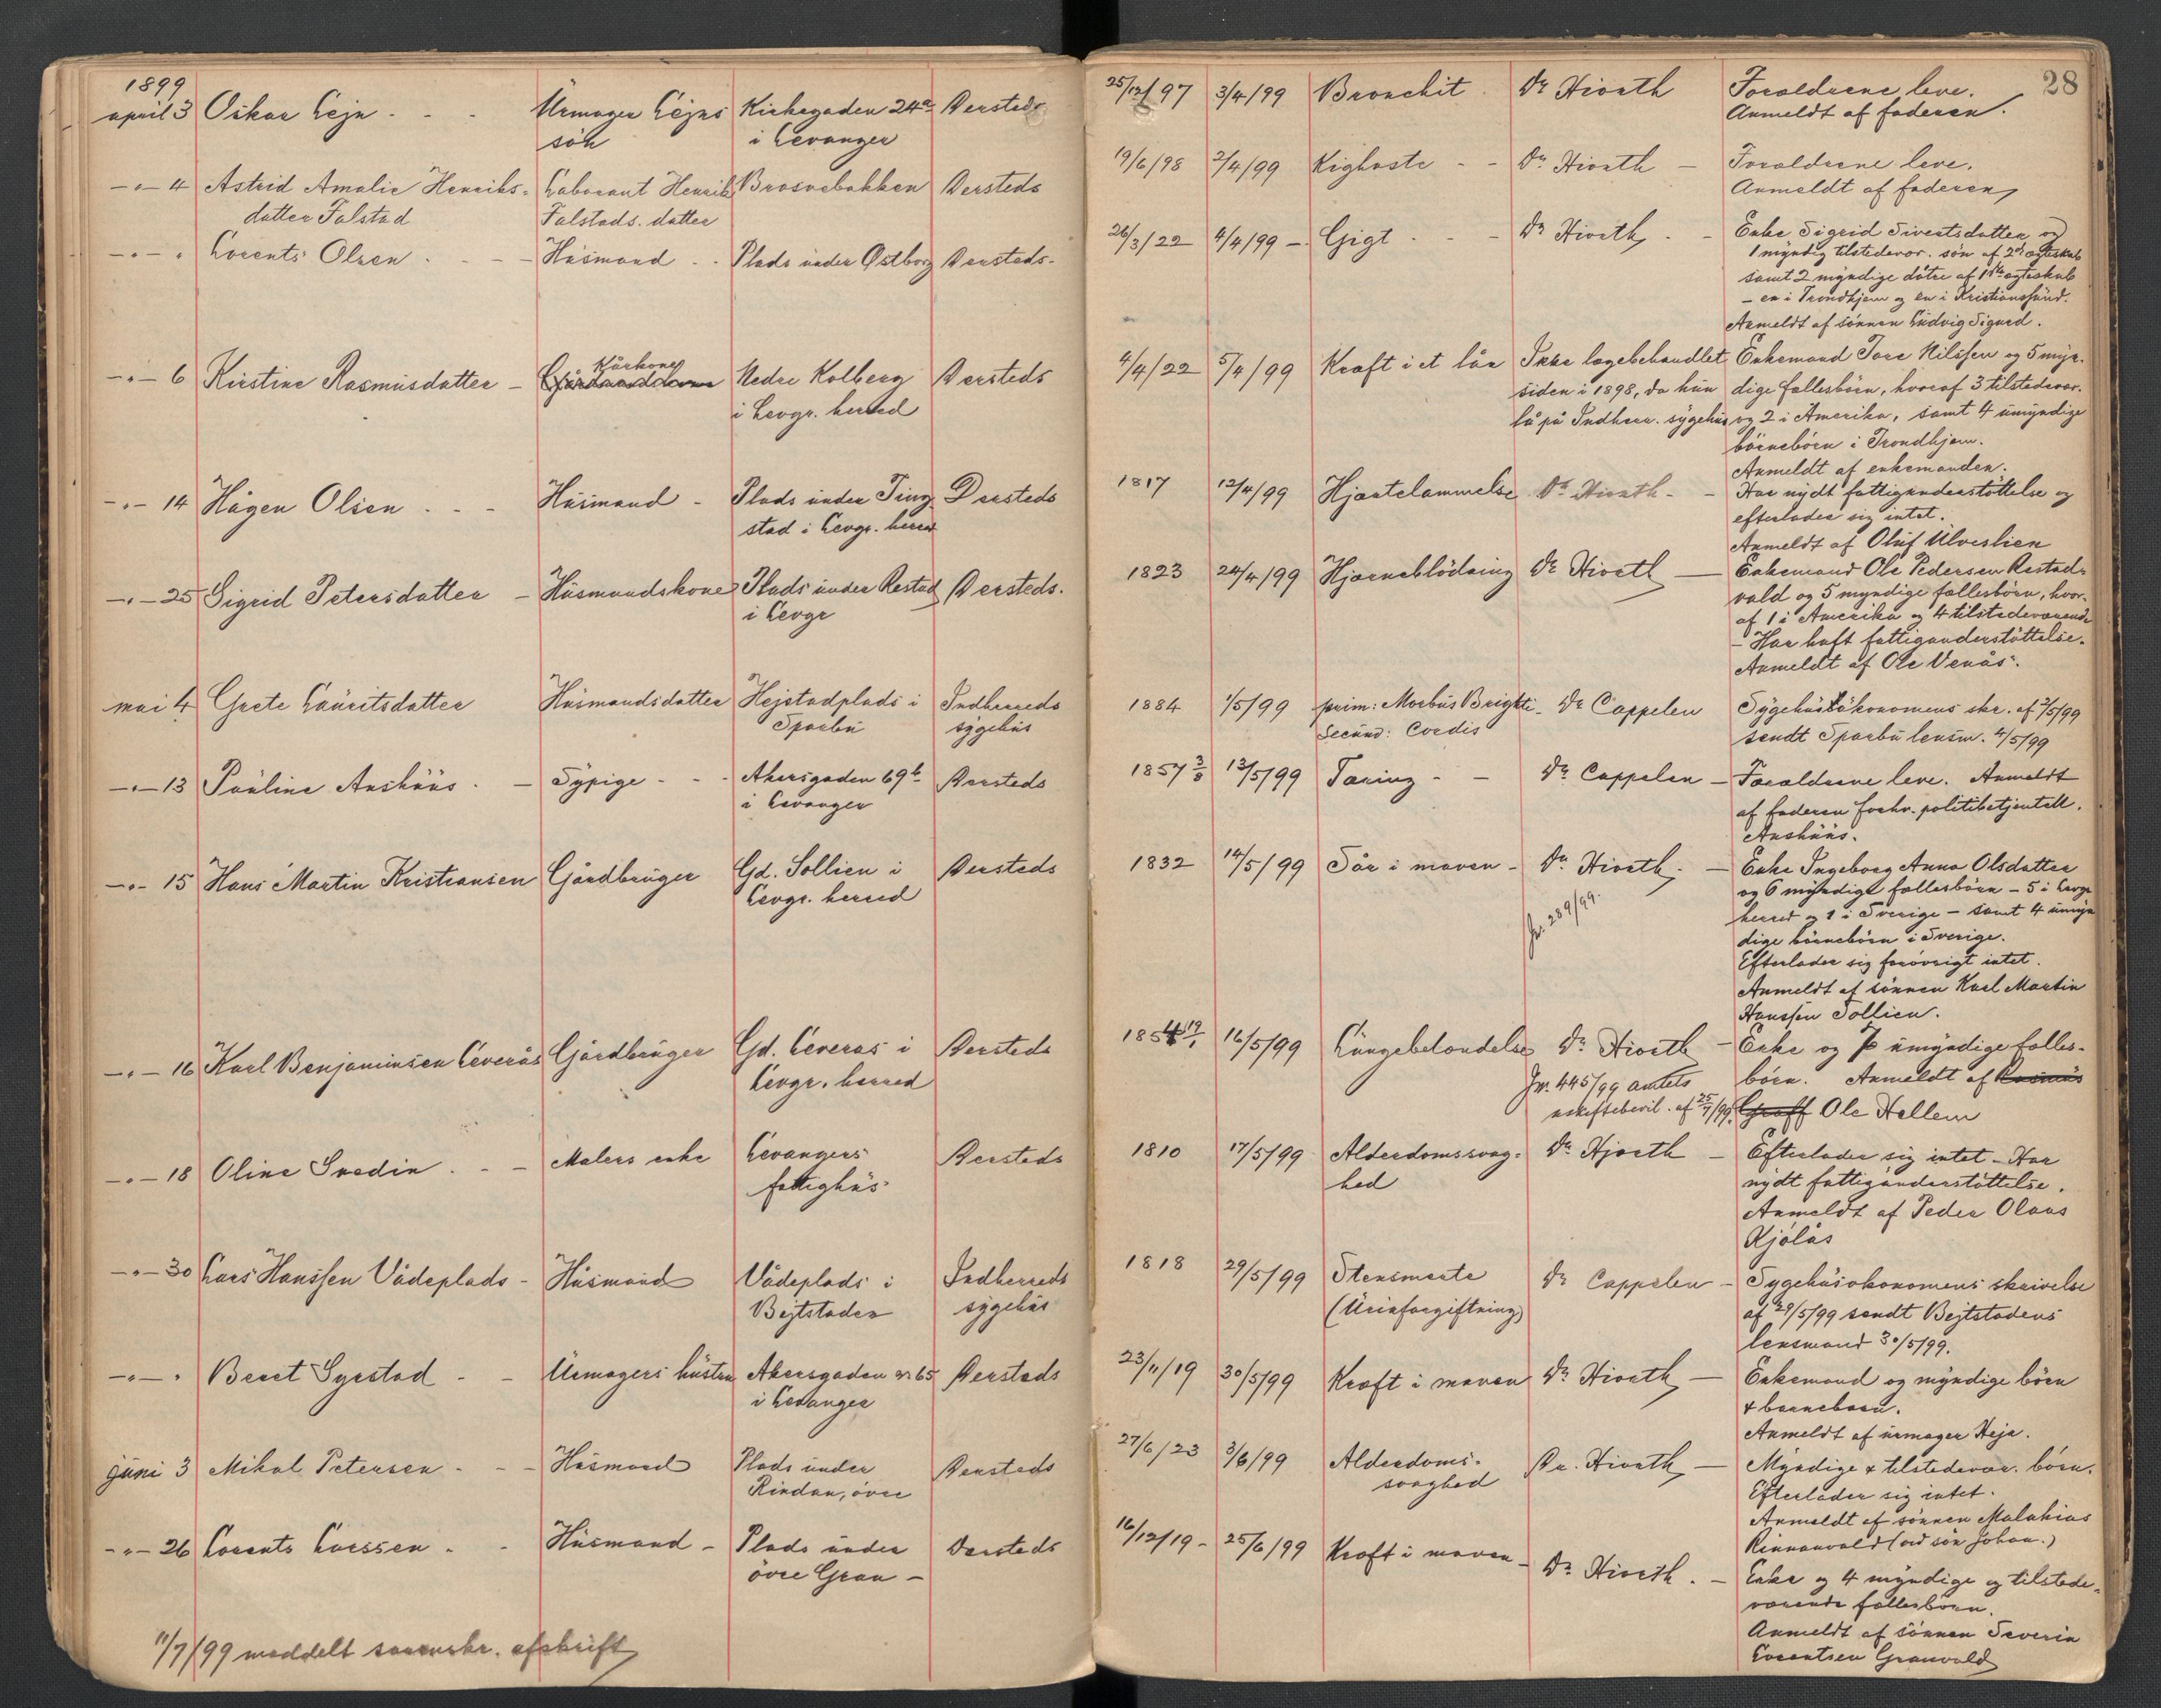 1899
april 3 Oskar Lejn - - - Urmager Lejns Kirkegaden 24a Dersteds
søn i Levanger
-"- 4 Astrid Amalie Henriks- Laborant Henrik Brusvebakken Dersteds
datter Falstad Falstads datter
-"- " Lorents Olsen - - - Husmand - - Plads under Østborg Dersteds -
-"- 6 Kirstine Rasmusdatter - Kårkone Nedre Kolberg Dersteds
i Levgr. herred
-"- 14 Hågen Olsen - - - Husmand - Plads under Ting- Dersteds
stad i Levgr. herred
-"- 25 Sigrid Petersdatter - Husmandskone Plads under Restad Dersteds.
i Levgr
mai 4 Grete Lauritsdatter Husmandsdatter Hejstadplads i Indherreds
Sparbu sygehus
-"- 13 Pauline Anshuus - - Sypige - - Akersgaden 69b Dersteds
i Levanger
-"- 15 Hans Martin Kristiansen Gårdbruger Gd. Sollien i Dersteds
Levgr. herred
-"- 16 Karl Benjaminsen Leverås Gårdbruger Gd. Leveras i Dersteds
Levgr. herred
-"- 18 Oline Svedin - - - Malers enke Levangers Dersteds
fattighus
-"- 30 Lars Hanssen Vådeplads - Husmand Vådeplads i Indherreds
Bejtstaden sygehus
-"- " Beret Syrstad - - Urmagers hustru Akersgaden nr 65 Dersteds
i Levanger
juni 3 Mikal Petersen - - - Husmand Plads under Dersteds
Rindan, øvre
-"- 26 Lorents Larssen - - Husmand - Plads under Dersteds
øvre Gran -
11/7/99 meddelt sorenskr. afskrift
28
25/12/97 3/4/99 Bronchit Dr Hiorth Forældrene leve.
Anmeldt af faderen.
19/6/98 2/4/99 Kighoste - - Dr. Hiorth - Forældrene leve.
Anmeldt af faderen
26/3/22 4/4/99 - Gigt - - - Dr Hiorth - - Enke Sigrid Sivertsdatter og
1 myndig tilstedevær. søn af 2det ægteskab
samt 2 myndige døtre af 1ste ægteskab
- en i Trondhjem og en i Kristianssund.
Anmeldt af sønnen Ludvig Sigurd.
4/4/22 5/4/99 Kræft i et lår Ikke lægebehandlet Enkemand Tore Nilssen og 5 myn-
siden i 1898, da hun dige fællesbørn, hvoraf 3 tilstedevær.
lå på Indherr. sygehus og 2 i Amerika, samt 4 umyndige
børnebørn i Trondhjem.
Anmeldt af enkemanden.
1817 12/4/99 Hjertelammelse Dr. Hiorth - - Har nydt fattigunderstøttelse og
efterlader sig intet.
Anmeldt af Oluf Ulveslien
1823 24/4/99 Hjerneblødning Dr Hiorth - Enkemand Ole Pedersen Restad-
vald og 5 myndige fællesbørn, hvor-
af 1 i Amerika og 4 tilstedeværende
- Har haft fattigunderstøttelse.
Anmeldt af Ole Venås.
1884 1/5/99 prim: Morbus Brighti - Dr Cappelen Sygehusøkonomens skr. af 2/5/99
secund: Cordis sendt Sparbu lensm. 4/5/99
1857 3/8 13/5/99 Tæring - - Dr Cappelen - Forældrene leve. Anmeldt
af faderen forhv. politibetjentell.
Anshuus.
1832 14/5/99 Sår i maven - Dr. Hiorth - - Enke Ingeborg Anna Olsdatter
og 6 myndige fællesbørn - 5 i Levgr
Jr. 289/99. herred og 1 i Sverige - samt 4 umyn
dige børnebørn i Sverige.
Efterlader sig forøvrigt intet.
Anmeldt af sønnen Karl Martin
Hanssen Sollien.
1854 19/1 16/5/99 Lungebetændelse Dr. Hiorth - Enke og umyndige fælles-
Jr. 445/99 amtets børn. Anmeldt af Rasmus
uskiftebevil. af 25/7/99. Graff Ole Hallem
1810 17/5/99 Alderdomssvag- Dr Hjorth - Efterlader sig intet - Har
hed nydt fattigunderstøttelse.
Anmeldt af Peder Olaus
Kjølås
1818 29/5/99 Stensmerte Dr Cappelen - Sygehusøkonomens skrivelse
(Urinforgiftning) af 29/5/99 sendt Bejtstadens
lensmand 30/5/99.
23/11/19 30/5/99 Kræft i maven Dr Hiorth - Enkemand og myndige børn
+ børnebørn.
Anmeldt af urmager Heje.
27/6/23 3/6/99 Alderdoms- Dr. Hiorth - Myndige + tilstedevær. børn.
svaghed Efterlader sig intet.
Anmeldt af sønnen Malakias
Rinnanvald (ved søn Johan.)
16/12/19 - 25/6/99 Kræft i maven - Dr Hiorth. - Enke og 4 myndige og tilstede-
værende fællesbørn.
Anmeldt af sønnen Severin
Lorentsen Granvald